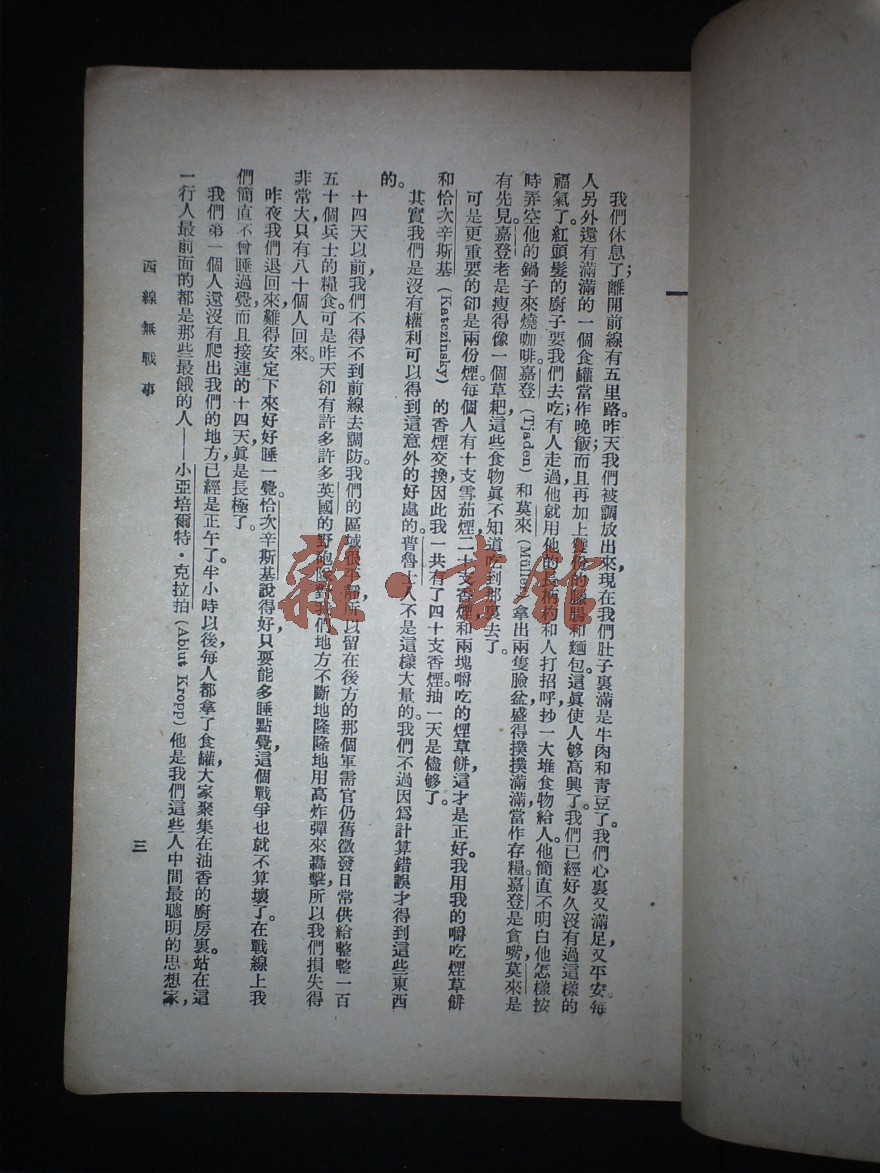 一
我們休息了;離開前線有五里路。昨天我們被調放出來,現在我們肚子裏滿是牛肉和青豆了。我們心裏又滿足,又平安。每
人另外還有滿滿的一個食罐當作晚飯;而且再加上雙份的臘腸和麵包。這眞使人够高興了。我們已經好久沒有過這樣的
福氣了。紅頭髮的廚子要我們去吃;有人走過他就用他的長柄杓和人打招呼,抄一大堆食物給人。他簡直不明白他怎樣按
時弄空他的鍋子來燒咖啡。嘉登 (Tjaden) 和莫來 (Müller) 拿出兩隻臉盆盛得撲撲滿滿當作存糧。嘉登是貪嘴,莫來是
有先見。嘉登老是瘦得像一個草耙,這些食物眞不知道吃到那裏去了。
可是更重要的卻是兩份煙。每個人有十支雪茄煙,二十支香煙和兩塊嚼吃的煙草餅,這才是正好。我用我的嚼吃煙草餅
和恰次辛斯基 (Katczinsky) 的香煙交換,因此我一共有了四十支香煙。抽一天是儘够了。
其實我們是沒有權利可以得到這意外的好處的。普魯士人不是這樣大量的。我們不過因爲計算錯誤才得到這些東西
的。
十四天以前,我們不得不到前線去調防。我們的區域很平靜,所以留在後方的那個軍需官仍舊徵發日常供給整整一百
五十個兵士的糧食。可是昨天卻有許多許多英國的野砲隊對我們地方不斷地隆隆地用高炸彈來轟擊,所以我們損失得
非常大,只有八十個人回來。
昨夜我們退回來,難得安定下來好好睡一覺。恰次辛斯基說得好,只要能多睡點覺,這個戰爭也就不算壞了。在戰線上我
們簡直不曾睡過覺,而且接連的十四天眞是長極了。
我們第一個人還沒有爬出我們的地方,已經是正午了。半小時以後,每人都拿了食罐,大家聚集在油香的廚房裏。站在這
一行人最前面的都是那些最餓的人——小亞培爾特·克拉拍 (Ablut Kropp) 他是我們這些人中間最聰明的思想家,
西線無戰事
三
雜·書館